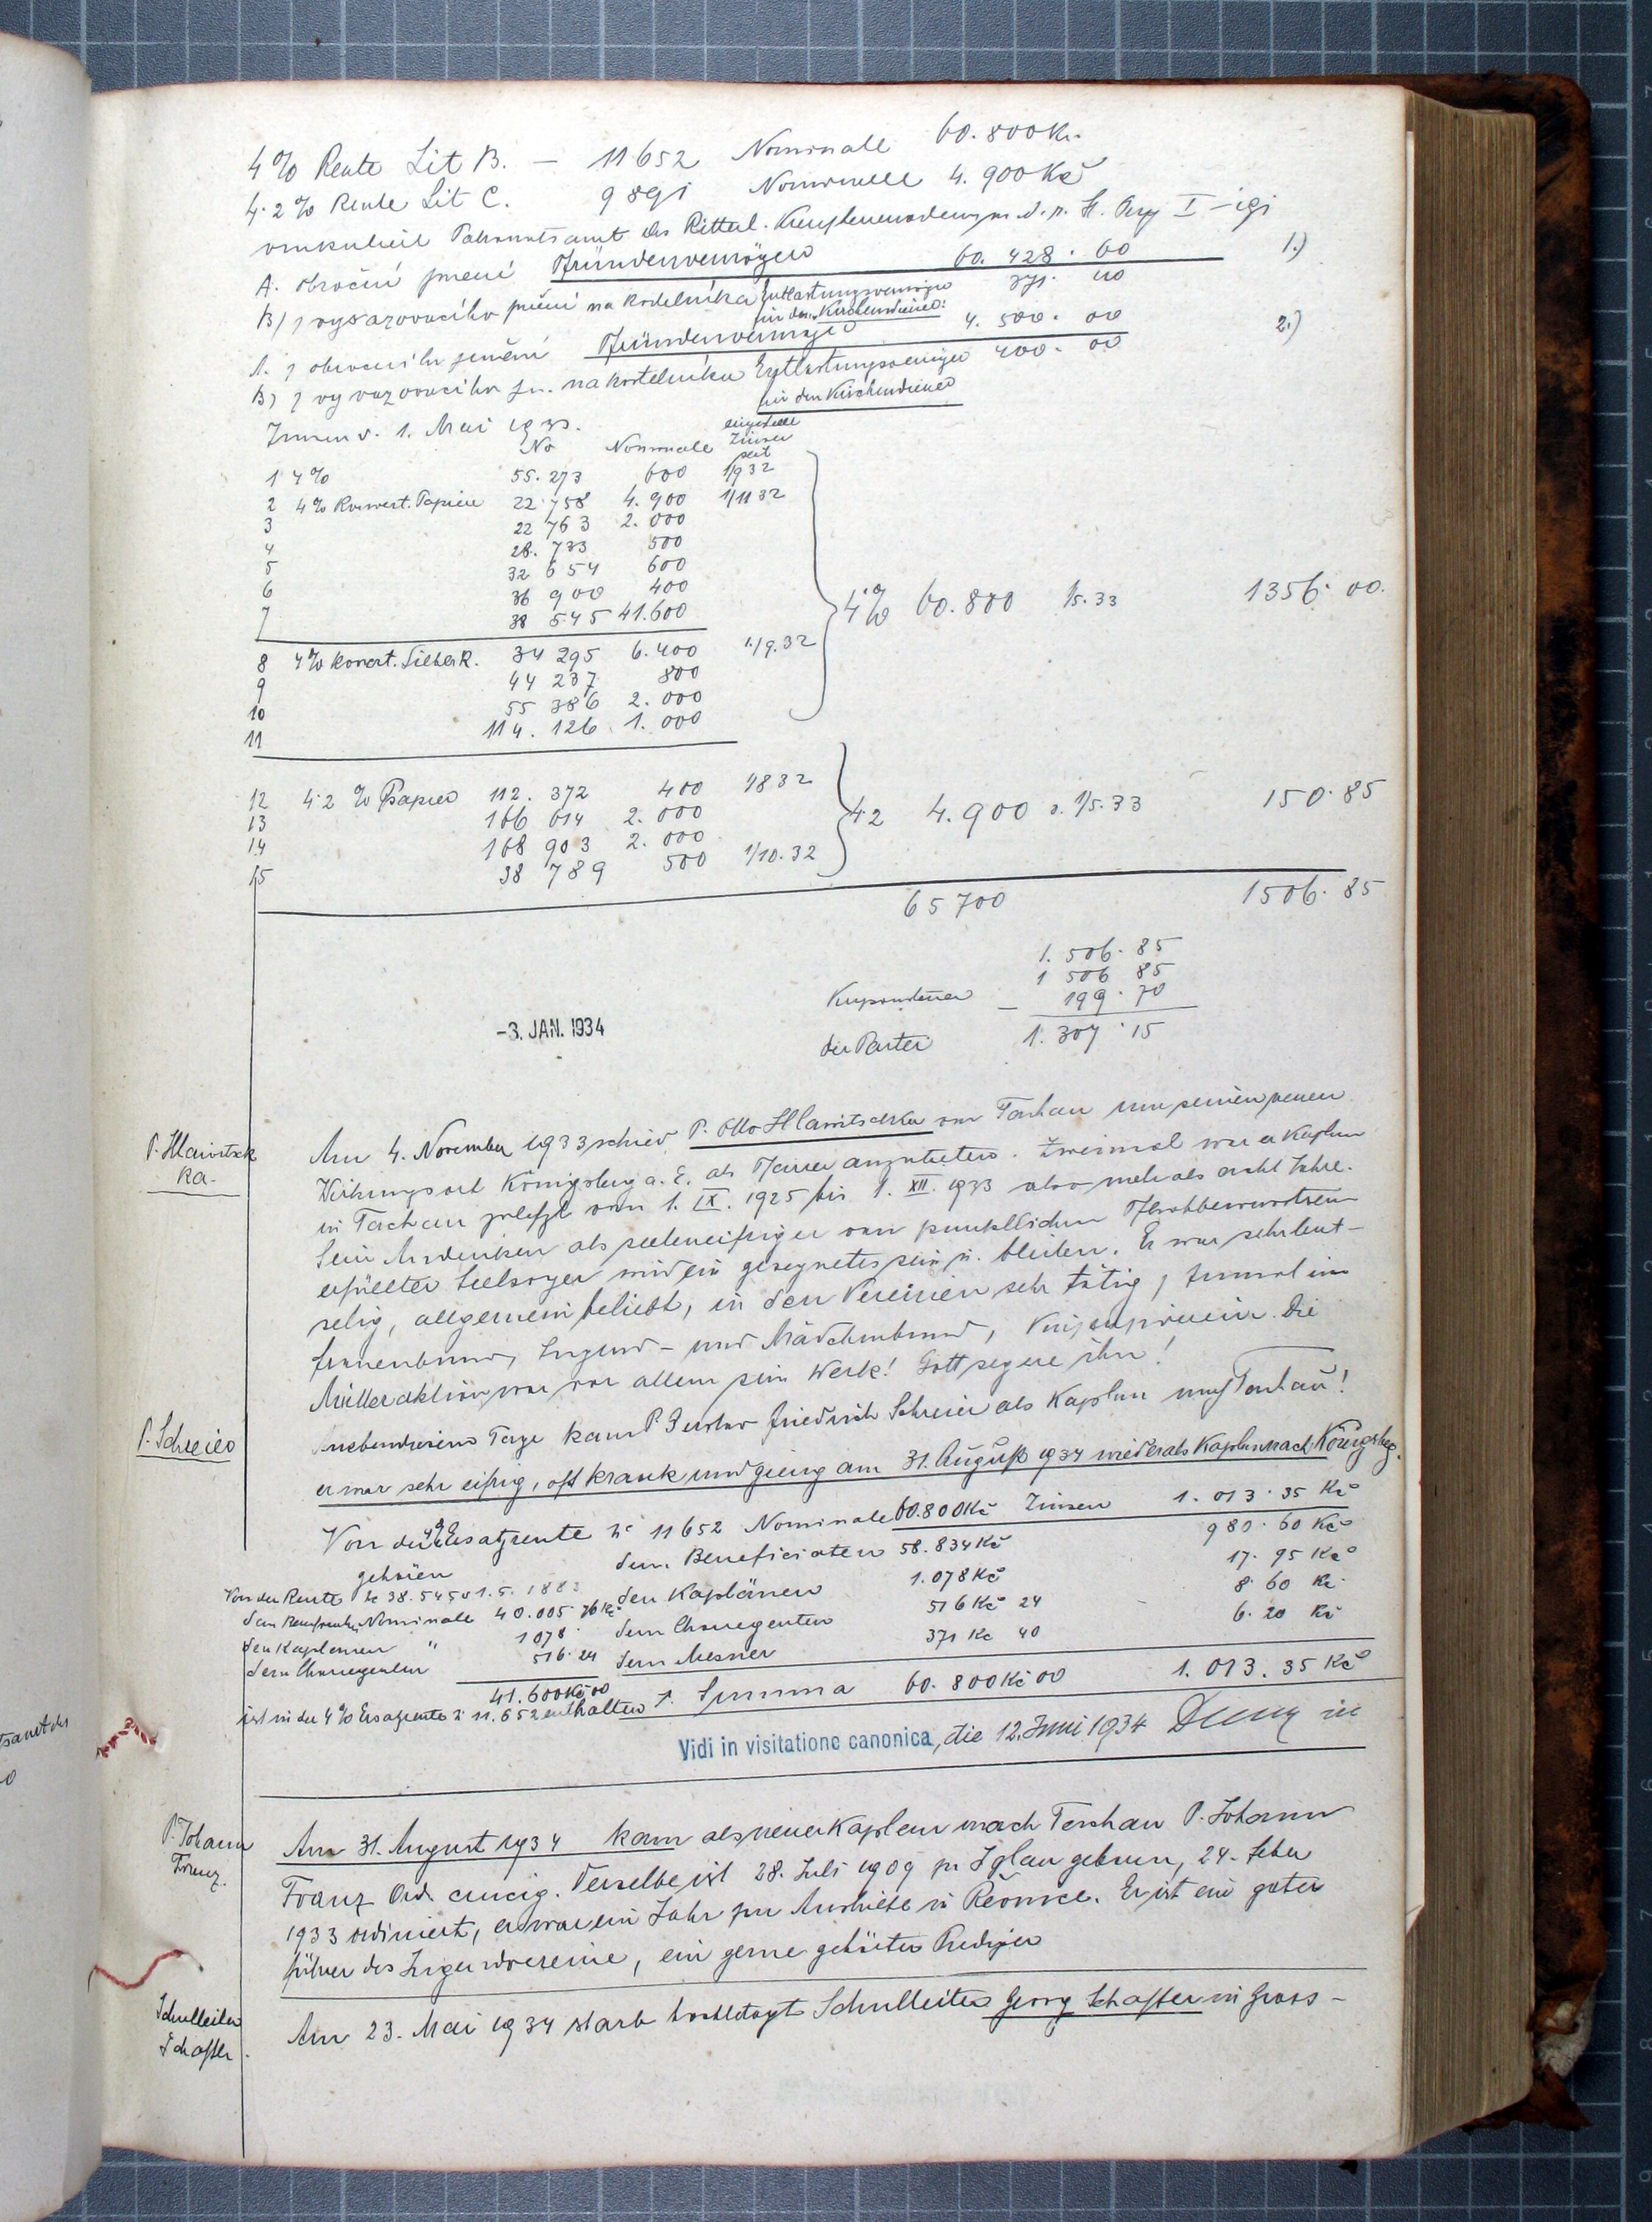 4% Rente Lit B. — 11652 Nominale 60.800 Kč
4.2% Rente Lit C. 9891 Nominelle 4.900 Kč
Patronatsamt des Ritterl.
A. obroční jmění Pfründenvermögen 60.428.60 1.)
B) vyvazovacího jmění na kostelníka Entlastungsvermögen 371. 40
für den Kirchendiener:
A. obročního jmění Pfründenvermögen 4.500.00 2.)
B) vyvazovacího jm. na kostelníka Entlastungsvermögen 400.00
für den Kirchendiener
Zinsen v. 1. Mai 1933.
No Nominale eingestellte Zinsen seit
1 4% 55.273 600 1/9 32
2 4% Konvert. Papier 22.758 4.900 1/11 32
3 22 763 2.000
4 28.733 500
5 32 654 600
6 36 900 400
7 38 545 41.600
4% 60.800 1/5.33 1356.00.
8 4% konvert. Silber R. 34 295 6.400 1./9.32
9 44 237 800
10 55 386 2.000
11 114.126 1.000
12 4.2% Papier 112.372 400 1/8 32
13 166 614 2.000
14 168 903 2.000
15 38 789 500 1/10.32
4.2 4.900 v. 1/5.33 150.85
65700 1506.85
1.506.85
1 506 85
Kuponsteuer — 199.70
der Partei 1.307.15
-3. JAN. 1934
P. Hlawitschka.
Am 4. November 1933 schied P. Otto Hlawitschka von Tachau um seinen neuen
Wirkungsort Königsberg a. E. als Pfarrer anzutreten. Zweimal war er Kaplan
in Tachau zuletzt vom 1. IX. 1925 bis 1. XII. 1933 also mehr als acht Jahre.
Sein Andenken als seeleneifriger von pünktlichem Pflichtbewusstsein
erfüllter Seelsorger wird ein gesegnetes sein u. bleiben. Er war sehr leut-
selig, allgemein beliebt, in den Vereinen sehr tätig, zumal im
Frauenbund, Jugend- und Mädchenbund, Die
Mütteraktion war vor allem sein Werk! Gott segne ihn!
P. Schreier
An ebendiesem Tage kam P. Gustav Friedrich Schreier als Kaplan nach Tachau!
er war sehr eifrig, oft krank und gieng am 31. August 1934 wieder als Kaplan nach Königsberg.
Von der 4% Ersatzrente No 11652 Nominale 60.800 Kč Zinsen 1.013.35 Kč
gehören dem Beneficiaten 58.834 Kč 980.60 Kč
Von der Rente No 38.545 v 1.5.1883 den Kaplänen 1.078 Kč 17.95 Kč
dem Beneficiaten Nominale 40.005.76 Kč dem Chorregenten 516 Kč 24 8.60 Kč
den Kaplänen " 1078. dem Mesner 371 Kč 40 6.20 Kč
dem Chorregenten 516.24
41.600 Kč 00 Summa 60.800 Kč 00 1.013.35 Kč
ist in der 4% Ersatzrente No 11.652 enthalten
Vidi in visitatione canonica, die 12. Juni 1934
P. Johann Franz.
Am 31. August 1934 kam als neuer Kaplan nach Tachau P. Johann
Franz Ord. crucig. Derselbe ist 28. Juli 1909 zu Iglau geboren, 24.
1933 ordiniert, er war ein Jahr zur Aushilfe in Er ist ein guter
Führer des Jugendvereine, ein gerne gehörter Prediger
Schulleiter Schaffer.
Am 23. Mai 1934 starb hochbetagt Schulleiter Georg Schaffer in Gross-